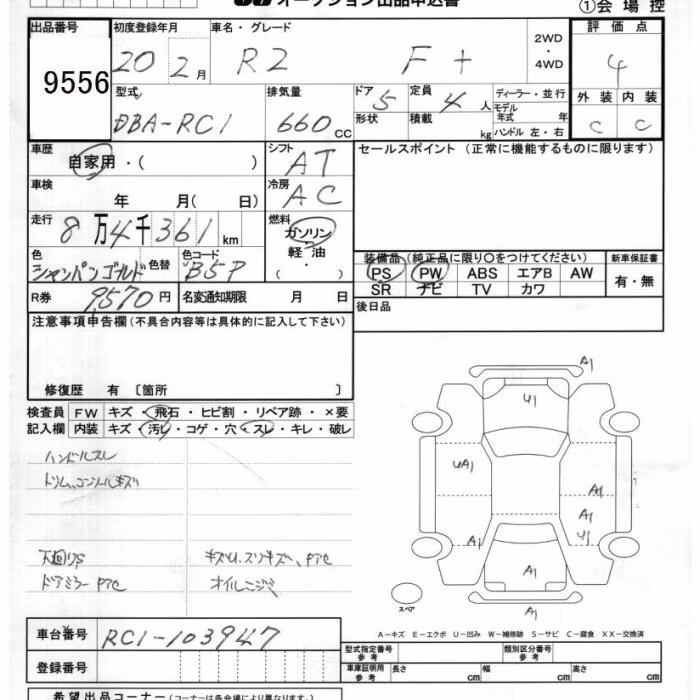 オークション出品申込書
①会場控
出品番号
9556
初度登録年月
20 2月
車名・グレード
R2 F+
2WD
・
4WD
評価点
4
型式
DBA-RC1
排気量
660 CC
ドア 5
定員 4 人
ディーラー・並行
モデル年式 年
形状
積載 kg
ハンドル 左・右
外装 内装
C C
車歴
自家用・( )
シフト
AT
セールスポイント (正常に機能するものに限ります)
車検
年 月( 日)
冷房
AC
走行
8万4千361 km
燃料
ガソリン
軽油
( )
色
シャンパンゴールド
色替
色コード
B5P
装備品(純正品に限り○をつけてください)
PS PW ABS エアB AW
SR ナビ TV カワ
新車保証書
有・無
R券 9,570円
名変通知期限 月 日
後日品
注意事項申告欄(不具合内容等は具体的に記入して下さい)
修復歴 有 〔箇所 〕
検査員 FW キズ・飛石・ヒビ割・リペア跡・×要
記入欄 内装 キズ・汚レ・コゲ・穴・スレ・キレ・破レ
ハンドルスレ
トリム、コンソールキズ
天廻り
キズU、スリキズ、
ドアミラー
オイルニジミ
A1
U1
UA1
A1
A1
A1
A1
U1
A1
A1
スペア
A-キズ E-エクボ U-凹み W-補修跡 S-サビ C-腐食 XX-交換済
車台番号 RC1-103947
登録番号
型式指定番号 参考
類別区分番号 参考
車庫証明用 参考 長さ cm 幅 cm 高さ cm
希望出品コーナー(コーナーは各会場により異なります。)